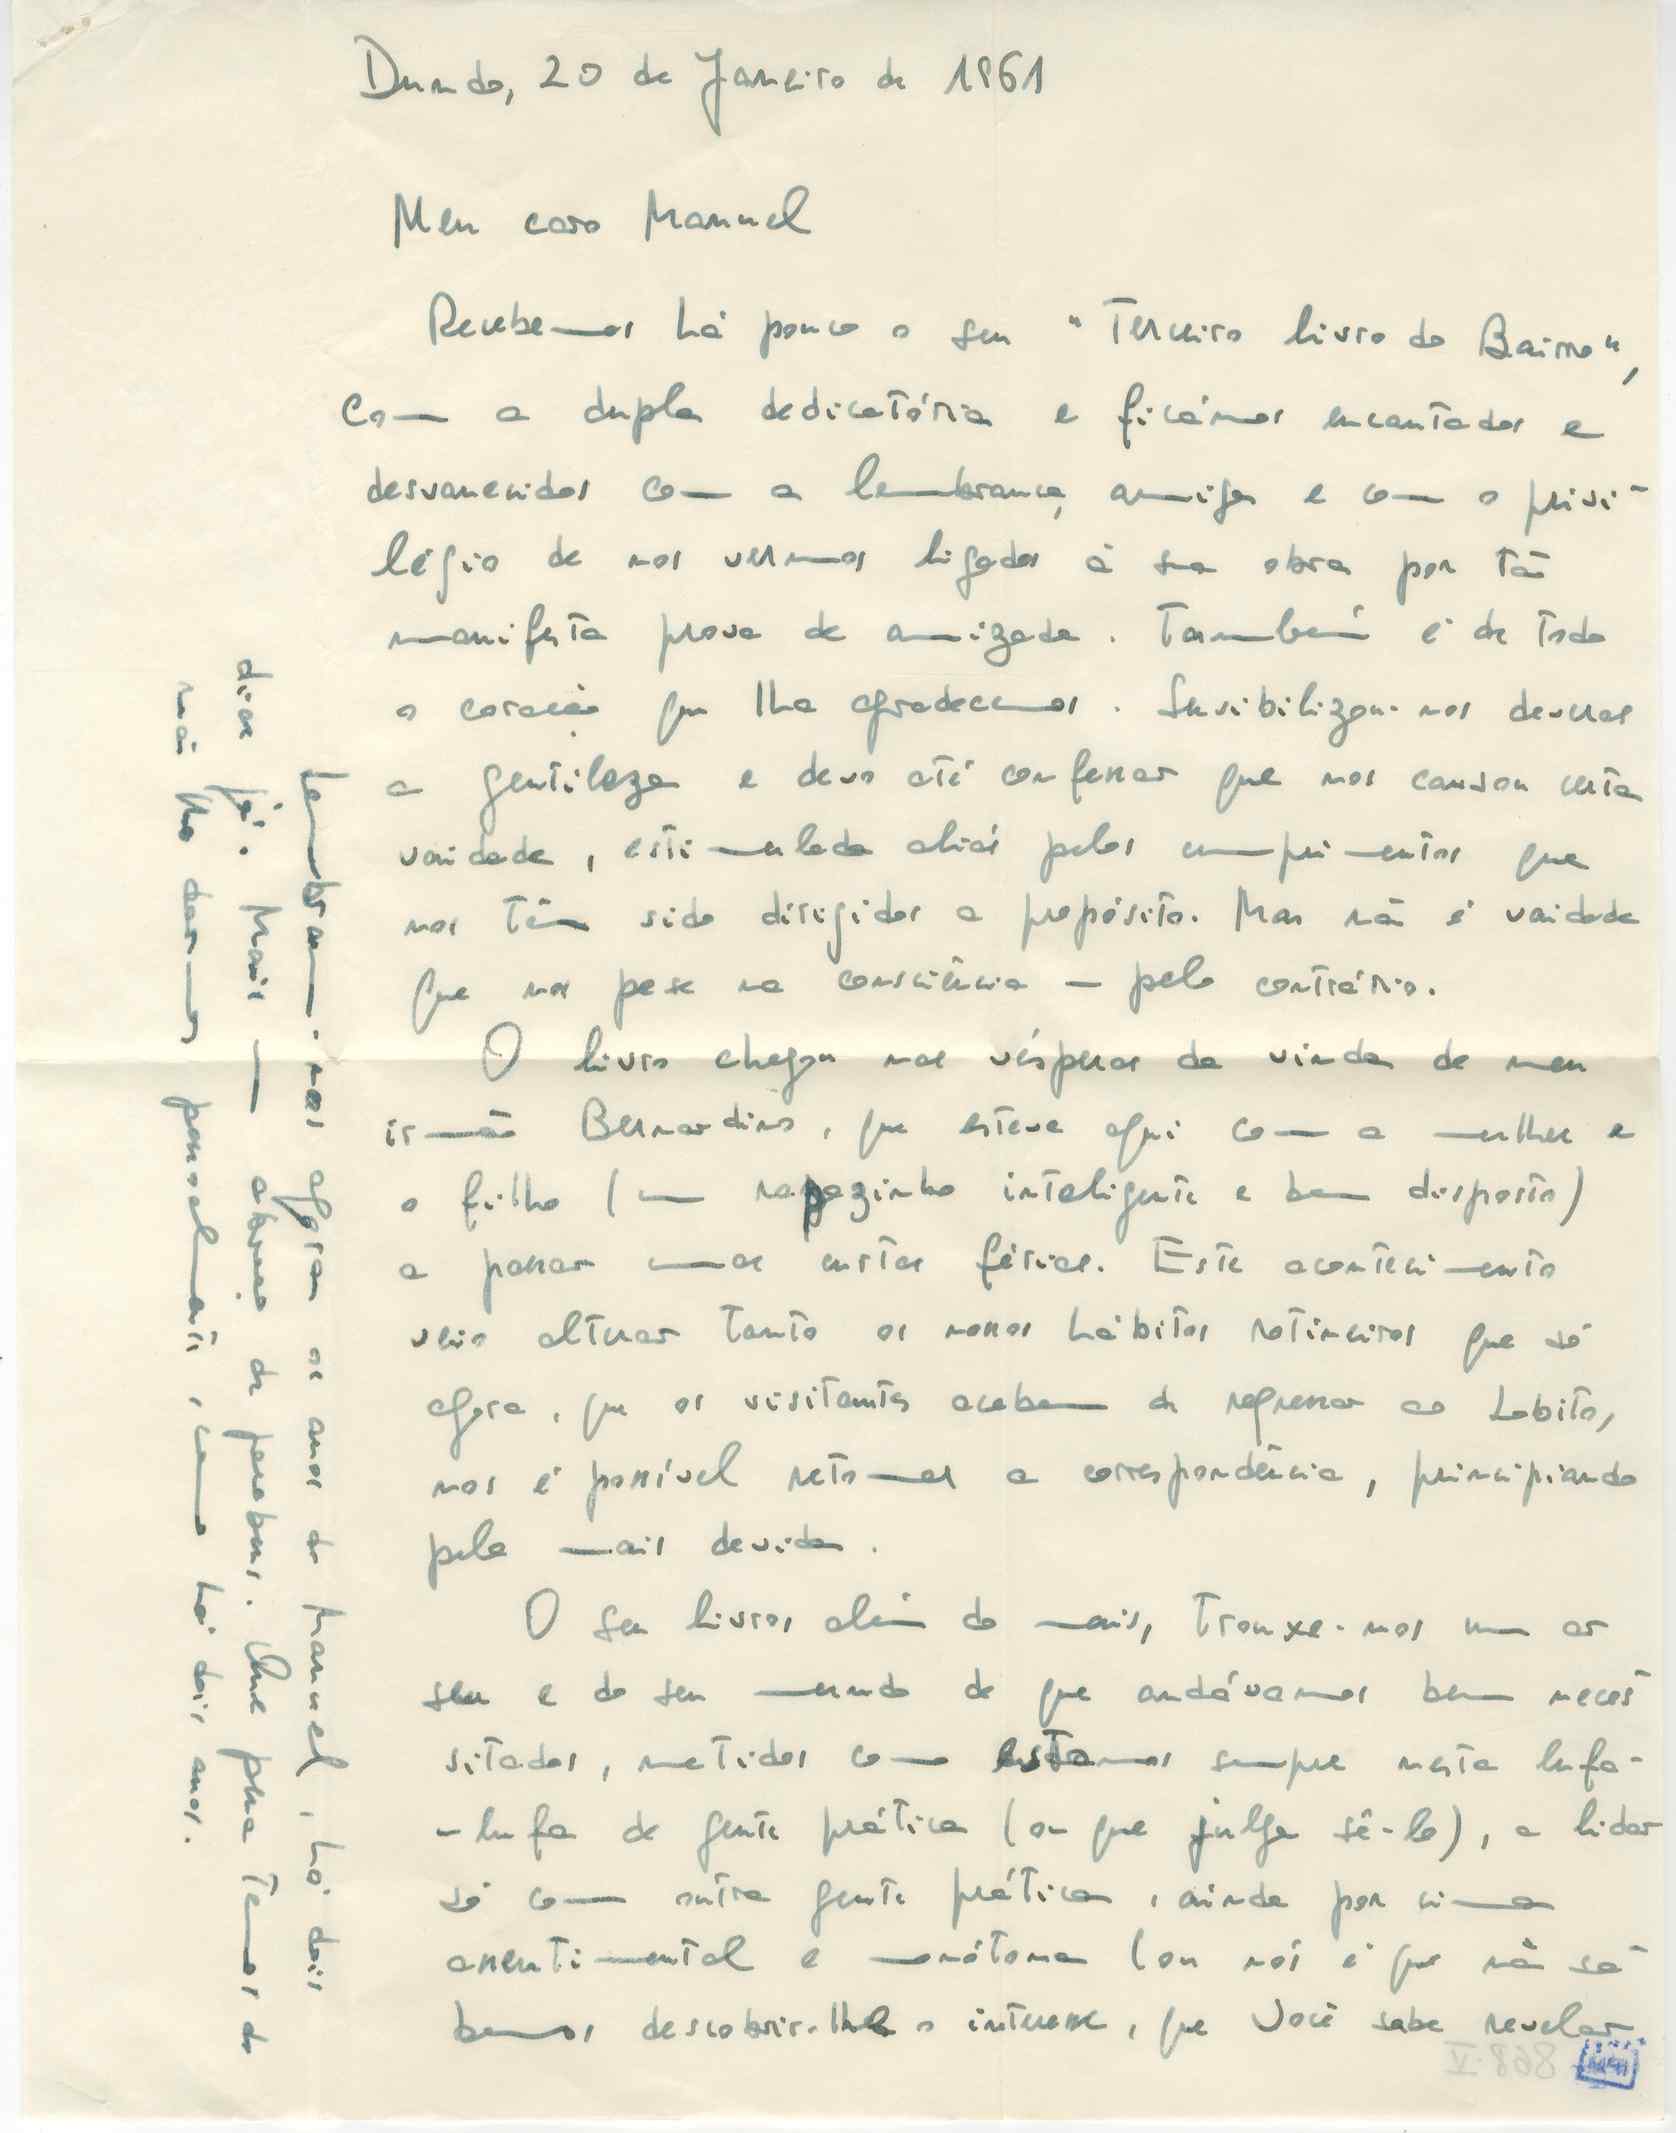 Dundo, 20 de Janeiro de 1961
Meu caro Manuel
Recebemos há pouco o seu "Terceiro livro do Bairro",
com a dupla dedicatória e ficámos encantados e
desvanecidos com a lembrança amiga e com o privi-
légio de nos vermos ligados à sua obra por tão
manifesta prova de amizade. Também é de todo
o coração que lha agradecemos. Sensibilizou-nos deveras
a gentileza e devo até confessar que nos causou certa
vaidade, estimulada aliás pelos cumprimentos que
nos têm sido dirigidos a propósito. Mas não é vaidade
que nos pese na consciência - pelo contrário.
O livro chegou nas vésperas da vinda de meu
irmão Bernardino, que esteve aqui com a mulher e
o filho (um rapazinho inteligente e bem disposto)
a passar umas curtas férias. Este acontecimento
veio alterar tanto os nossos hábitos rotineiros que só
agora, que os visitantes acabam de regressar ao Lobito,
nos é possível retomar a correspondência, principiando
pela mais devida.
O seu livro, além do mais, trouxe-nos um ar
seu e do seu mundo de que andávamos bem neces
sitados, metidos como estamos sempre nesta lufa-
-lufa de gente prática (ou que julga sê-lo), a lidar
só com outra gente prática, ainda por cima
assentimental e monótona (ou nós é que não sa
bemos descobrir-lhe o interesse, que Você sabe revelar
Lembram-nos agora os anos do Manuel, há dois
dias já. Mais um abraço de parabens. Que pena temos de
não lho darmos pessoalmente, como há dois anos.
868-V